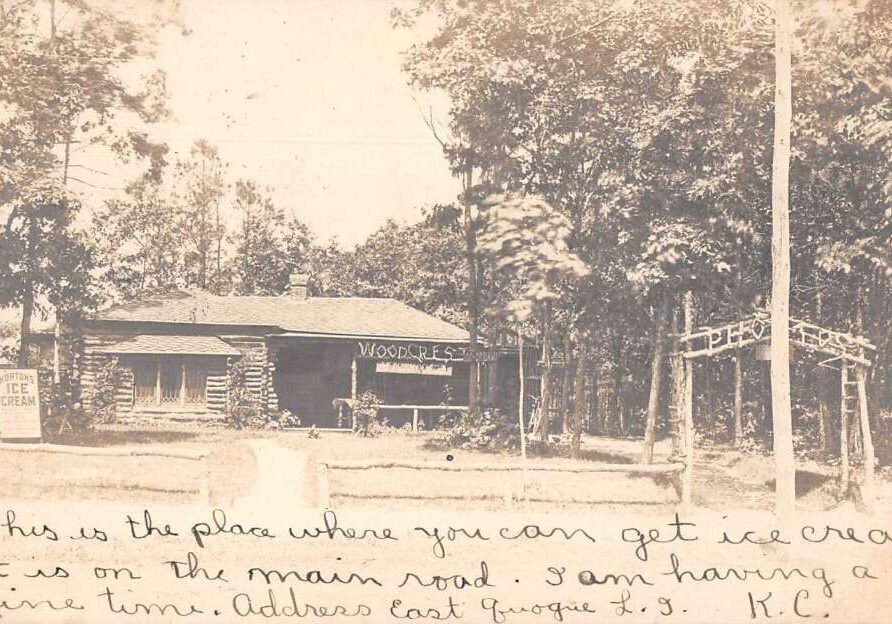 WOODCREST
PHOTOS
HORTON'S
ICE
CREAM
his is the place where you can get ice crea
t is on the main road. I am having a
ine time. Address East Quogue L.I. K.C.